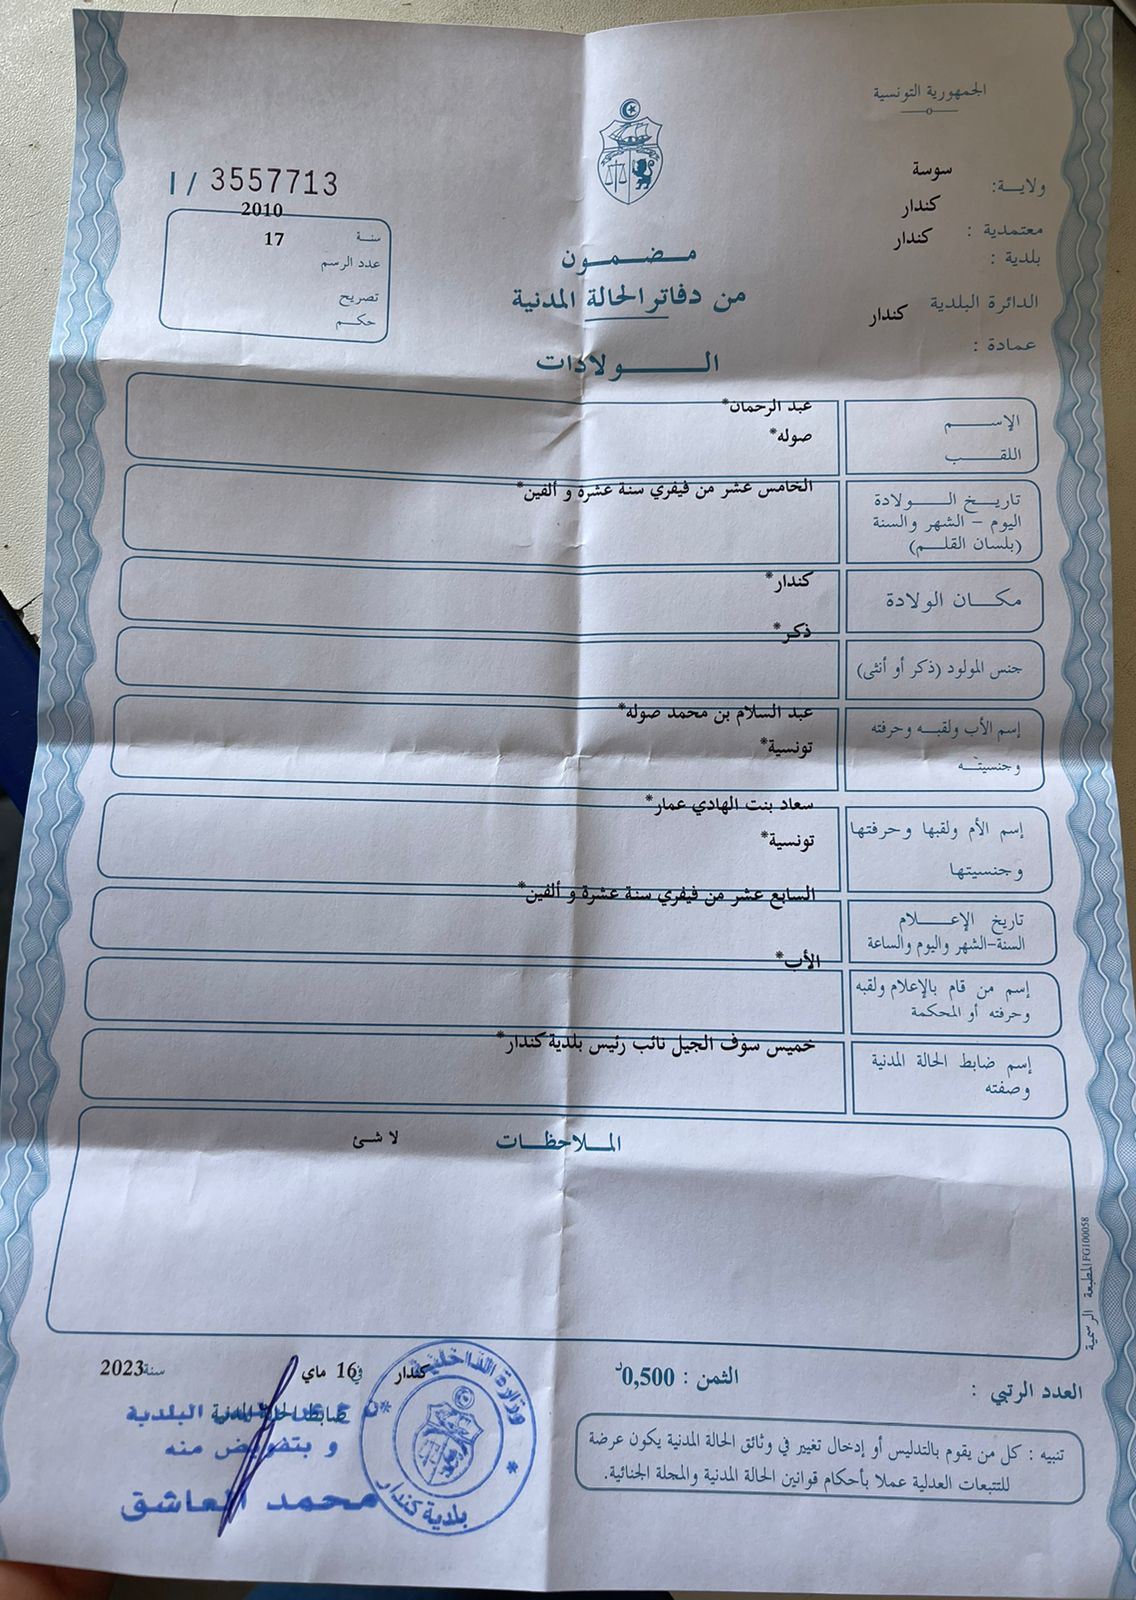 الجمهورية التونسية
ولاية: سوسة
معتمدية : كندار
بلدية : كندار
الدائرة البلدية كندار
عمادة :
I / 3557713
سنة 2010
عدد الرسم 17
تصريح
حكم
مضمون
من دفاتر الحالة المدنية
الولادات
الإسم عبد الرحمان*
اللقب صوله*
تاريخ الولادة
اليوم - الشهر والسنة
(بلسان القلم)
الخامس عشر من فيفري سنة عشرة و ألفين*
مكان الولادة كندار*
جنس المولود (ذكر أو أنثى) ذكر*
إسم الأب ولقبه وحرفته
وجنسيته
عبد السلام بن محمد صوله*
تونسية*
إسم الأم ولقبها وحرفتها
وجنسيتها
سعاد بنت الهادي عمار*
تونسية*
تاريخ الإعلام
السنة-الشهر واليوم والساعة
السابع عشر من فيفري سنة عشرة و ألفين*
إسم من قام بالإعلام ولقبه
وحرفته أو المحكمة
الأب*
إسم ضابط الحالة المدنية
وصفته
خميس سوف الجيل نائب رئيس بلدية كندار*
الملاحظات
لا شئ
المطبعة الرسمية FG100058
العدد الرتبي :
الثمن : 0,500د
كندار في 16 ماي سنة 2023
ضابط الحالة المدنية
البلدية
و بتفويض منه
محمد العاشق
وزارة الداخلية
بلدية كندار
تنبيه : كل من يقوم بالتدليس أو إدخال تغيير في وثائق الحالة المدنية يكون عرضة
للتتبعات العدلية عملا بأحكام قوانين الحالة المدنية والمجلة الجنائية.